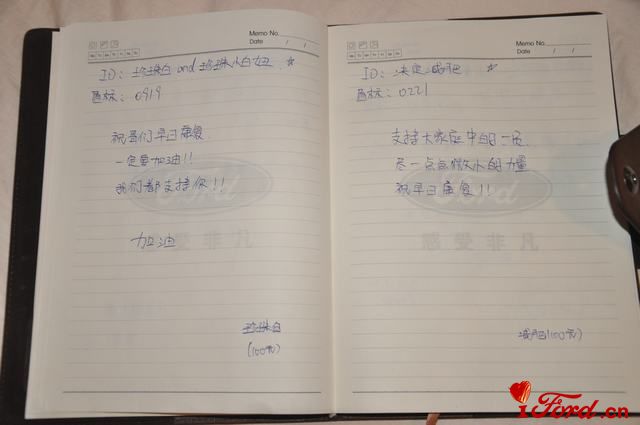 Memo No.
Date / /
ID: 珍珠白 and 珍珠小白妞 ☆
区标: 0919
祝哥们早日康复
一定要加油!!
我们都支持你!!
Ford
感受非凡
加油
珍珠白
(100元)
Memo No.
Date / /
ID: 决定减肥 ☆
区标: 0221
支持大家庭中的一员
尽一点点微小的力量
祝早日康复!!
Ford
感受非凡
减肥(100元)
iFord.cn